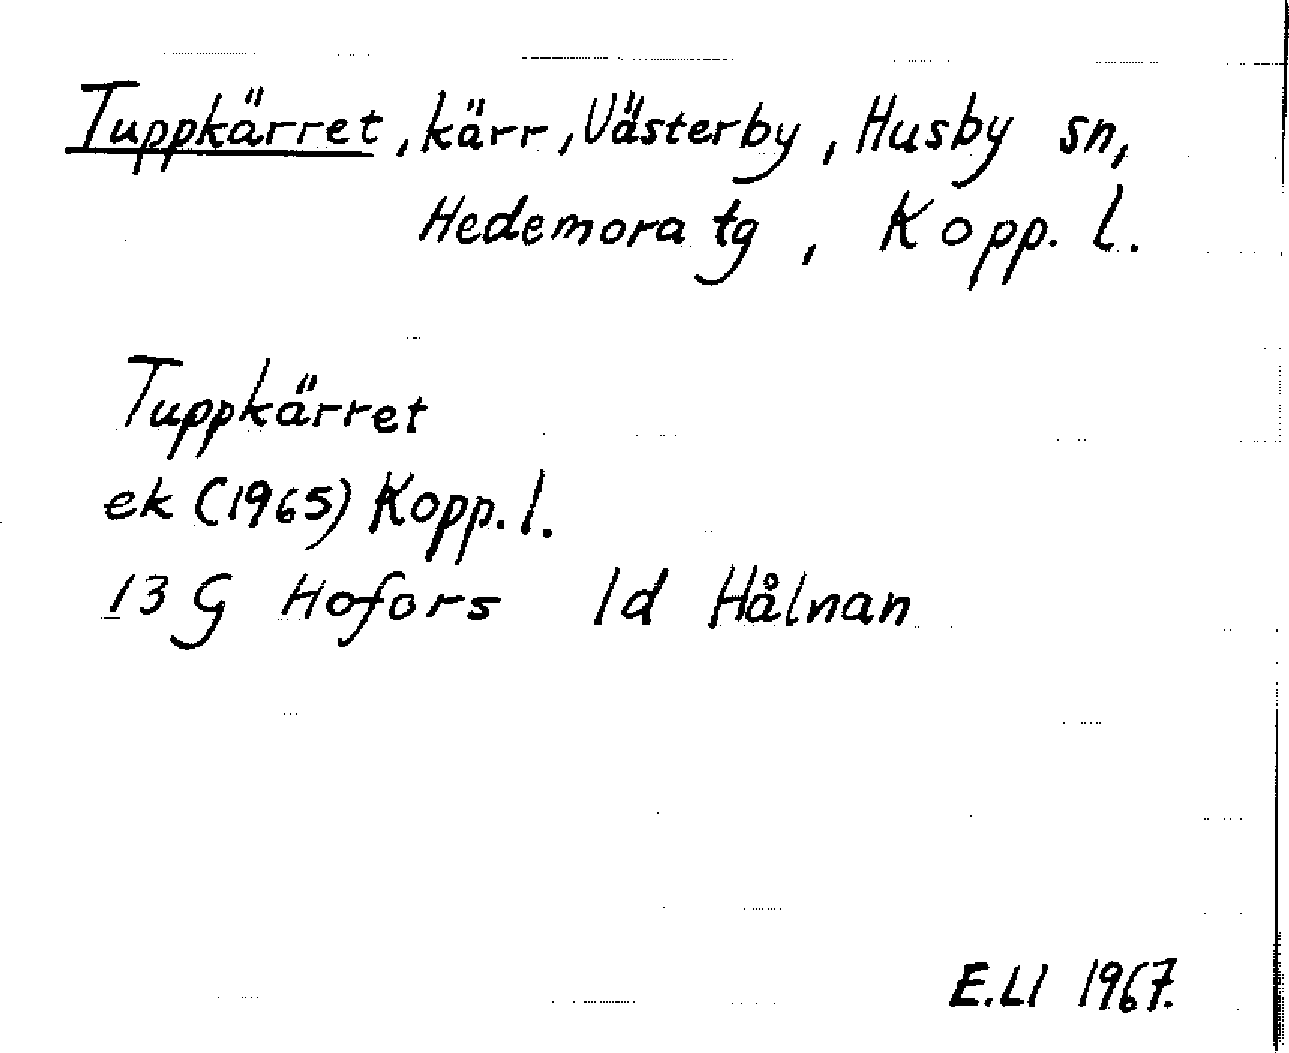 Tuppkärret, kärr, Västerby, Husby sn,
Hedemora tg, Kopp. l.
Tuppkärret
ek (1965) Kopp. l.
13 G Hofors 1d Hålnan
E.Ll 1967.